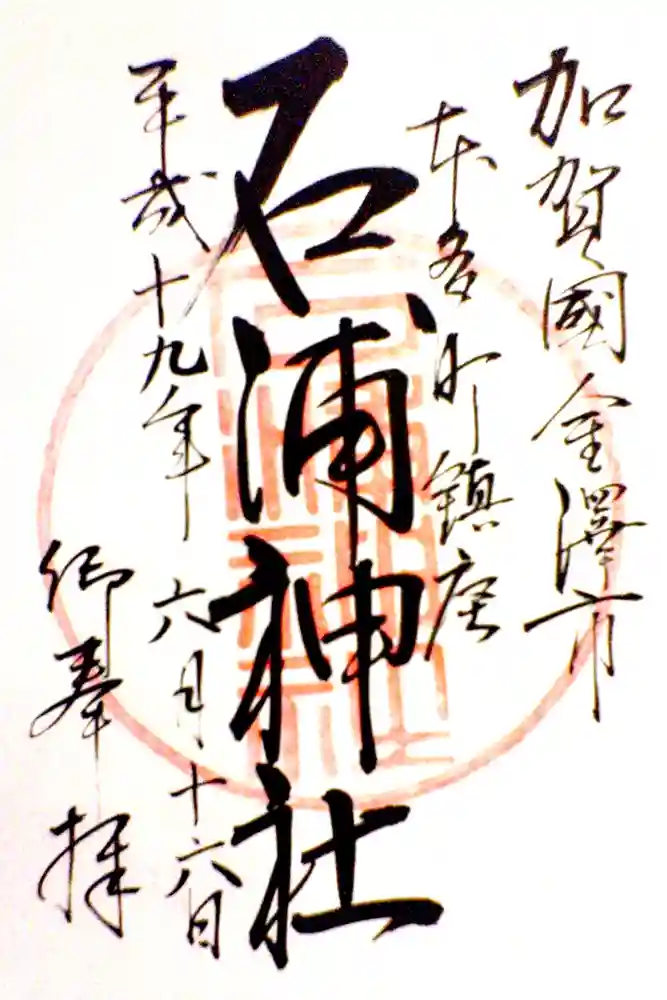 加賀國金澤市
本多町鎮座
石浦神社
平成十九年
六月十六日
御奉拝